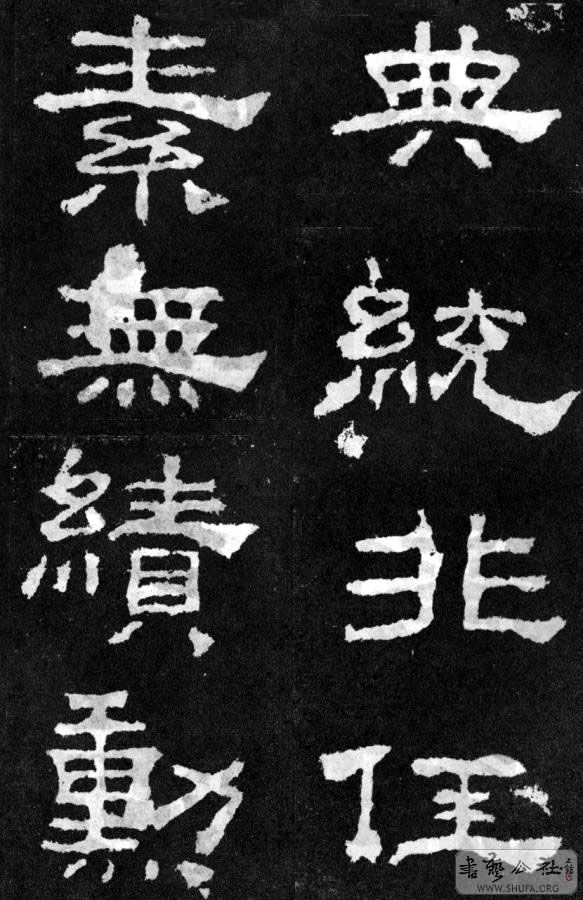 典統非任
素無績勳
書藝公社
WWW.SHUFA.ORG